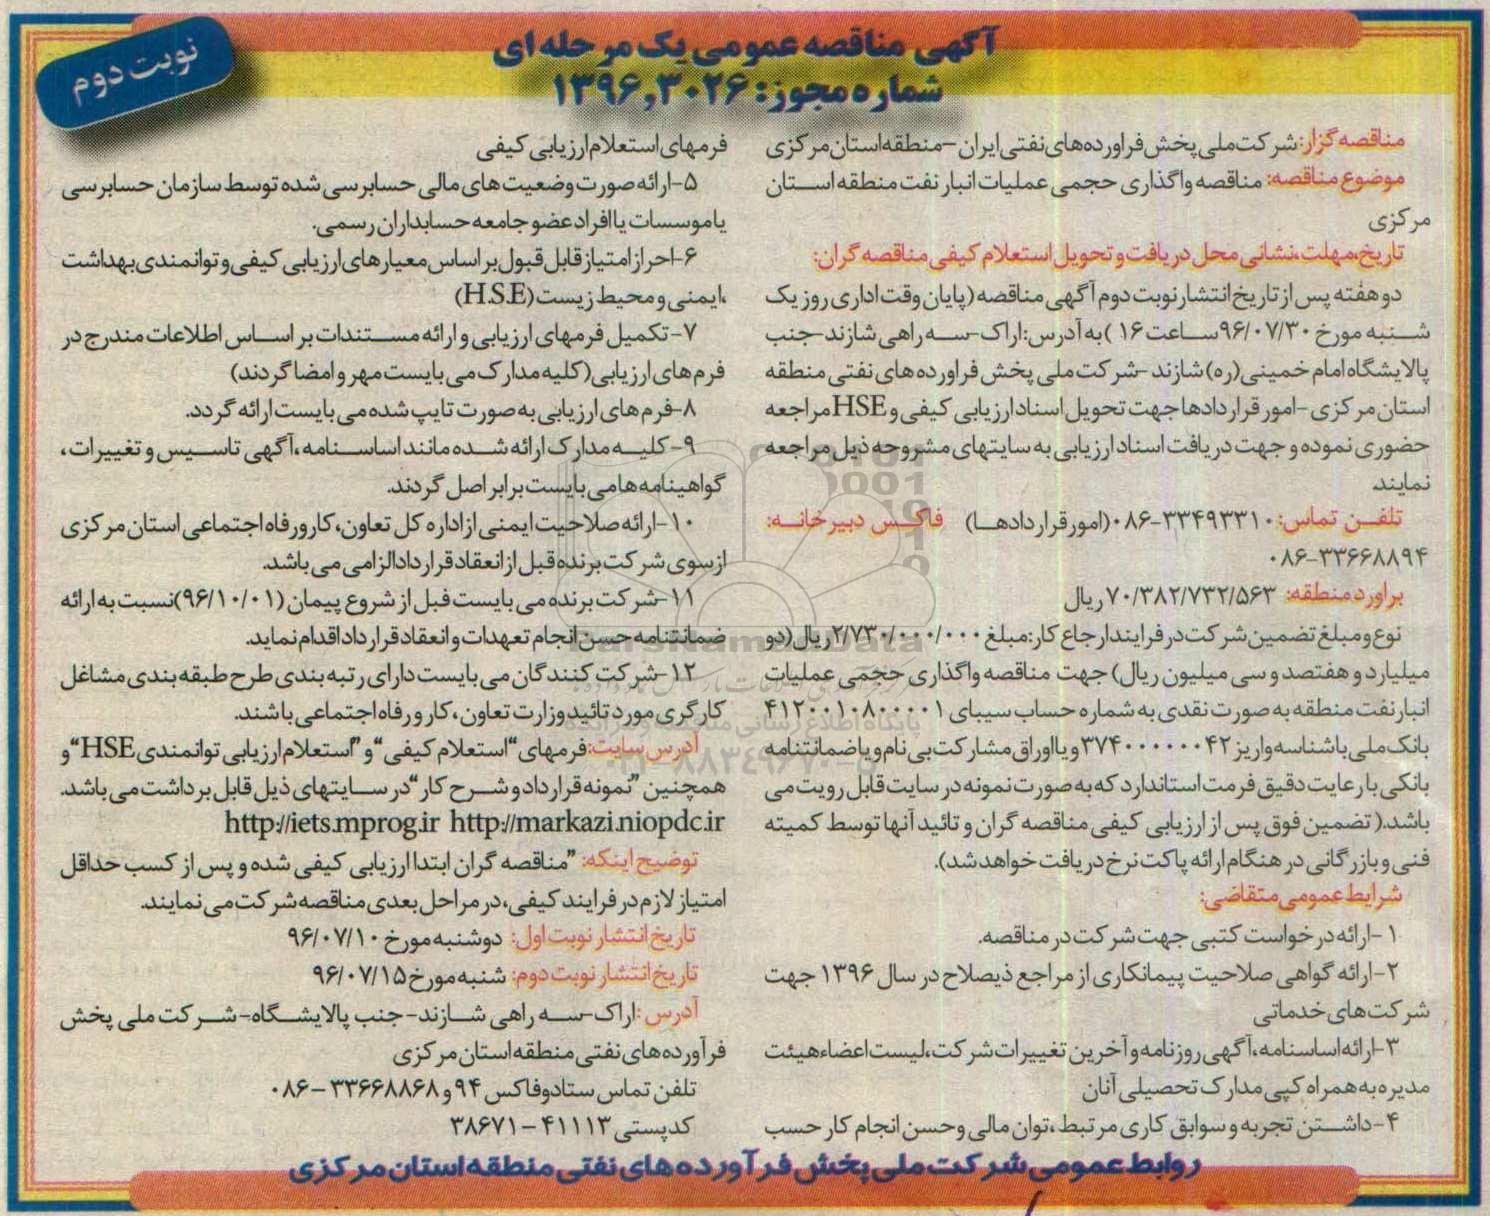 نوبت دوم
آگهی مناقصه عمومی یک مرحله ای
شماره مجوز: ۱۳۹۶,۳۰۲۶
مناقصه گزار: شرکت ملی پخش فراورده های نفتی ایران – منطقه استان مرکزی
موضوع مناقصه: مناقصه واگذاری حجمی عملیات انبار نفت منطقه استان
مرکزی
تاریخ،مهلت،نشانی محل دریافت و تحویل استعلام کیفی مناقصه گران:
دو هفته پس از تاریخ انتشار نوبت دوم آگهی مناقصه (پایان وقت اداری روز یک
شنبه مورخ ۹۶/۰۷/۳۰ساعت ۱۶ ) به آدرس:اراک-سه راهی شازند-جنب
پالایشگاه امام خمینی(ره) شازند -شرکت ملی پخش فراورده های نفتی منطقه
استان مرکزی -امور قراردادها جهت تحویل اسناد ارزیابی کیفی و HSE مراجعه
حضوری نموده و جهت دریافت اسناد ارزیابی به سایتهای مشروحه ذیل مراجعه
نمایند.
تلفن تماس: ۳۳۴۹۳۳۱۰-۰۸۶(امور قراردادها) فاکس دبیرخانه:
۰۸۶-۳۳۶۶۸۸۹۴
براورد منطقه: ۷۰/۳۸۲/۷۳۲/۵۶۳ ریال
نوع و مبلغ تضمین شرکت در فرایند ارجاع کار:مبلغ ۲/۷۳۰/۰۰۰/۰۰۰ریال (دو
میلیارد و هفتصد و سی میلیون ریال) جهت مناقصه واگذاری حجمی عملیات
انبار نفت منطقه به صورت نقدی به شماره حساب سیبای ۴۱۲۰۰۱۰۸۰۰۰۰۱
بانک ملی با شناسه واریز ۳۷۴۰۰۰۰۰۰۴۲ و یا اوراق مشارکت بی نام و یا ضمانتنامه
بانکی با رعایت دقیق فرمت استاندارد که به صورت نمونه در سایت قابل رویت می
باشد.( تضمین فوق پس از ارزیابی کیفی مناقصه گران و تائید آنها توسط کمیته
فنی و بازرگانی در هنگام ارائه پاکت نرخ دریافت خواهد شد).
شرایط عمومی متقاضی:
۱-ارائه درخواست کتبی جهت شرکت در مناقصه.
۲-ارائه گواهی صلاحیت پیمانکاری از مراجع ذیصلاح در سال ۱۳۹۶ جهت
شرکت های خدماتی
۳-ارائه اساسنامه،آگهی روزنامه و آخرین تغییرات شرکت،لیست اعضاء هیئت
مدیره به همراه کپی مدارک تحصیلی آنان
۴-داشتن تجربه و سوابق کاری مرتبط ،توان مالی و حسن انجام کار حسب
فرمهای استعلام ارزیابی کیفی
۵-ارائه صورت وضعیت های مالی حسابرسی شده توسط سازمان حسابرسی
یا موسسات یا افراد عضو جامعه حسابداران رسمی.
۶-احراز امتیاز قابل قبول بر اساس معیارهای ارزیابی کیفی و توانمندی بهداشت
،ایمنی و محیط زیست (H.S.E)
۷-تکمیل فرمهای ارزیابی و ارائه مستندات بر اساس اطلاعات مندرج در
فرم های ارزیابی (کلیه مدارک می بایست مهر و امضا گردند)
۸-فرم های ارزیابی به صورت تایپ شده می بایست ارائه گردد.
۹-کلیه مدارک ارائه شده مانند اساسنامه ،آگهی تاسیس و تغییرات ،
گواهینامه ها می بایست برابر اصل گردند.
۱۰-ارائه صلاحیت ایمنی از اداره کل تعاون،کار و رفاه اجتماعی استان مرکزی
از سوی شرکت برنده قبل از انعقاد قرارداد الزامی می باشد.
۱۱-شرکت برنده می بایست قبل از شروع پیمان (۹۶/۱۰/۰۱)نسبت به ارائه
ضمانتنامه حسن انجام تعهدات و انعقاد قرارداد اقدام نماید.
۱۲-شرکت کنندگان می بایست دارای رتبه بندی طرح طبقه بندی مشاغل
کارگری مورد تائید وزارت تعاون،کار و رفاه اجتماعی باشند.
آدرس سایت:فرمهای “استعلام کیفی “و ”استعلام ارزیابی توانمندی HSE“و
همچنین ”نمونه قرارداد و شرح کار “در سایتهای ذیل قابل برداشت می باشد.
http://iets.mprog.ir http://markazi.niopdc.ir
توضیح اینکه: ”مناقصه گران ابتدا ارزیابی کیفی شده و پس از کسب حداقل
امتیاز لازم در فرایند کیفی،در مراحل بعدی مناقصه شرکت می نمایند.
تاریخ انتشار نوبت اول: دوشنبه مورخ ۹۶/۰۷/۱۰
تاریخ انتشار نوبت دوم: شنبه مورخ ۹۶/۰۷/۱۵
آدرس :اراک-سه راهی شازند- جنب پالایشگاه-شرکت ملی پخش
فرآورده های نفتی منطقه استان مرکزی
تلفن تماس ستاد و فاکس ۹۴ و ۳۳۶۶۸۸۶۸ – ۰۸۶
کد پستی ۴۱۱۱۳ – ۳۸۶۷۱
روابط عمومی شرکت ملی پخش فرآورده های نفتی منطقه استان مرکزی
ParsNamadData
پایگاه اطلاع رسانی